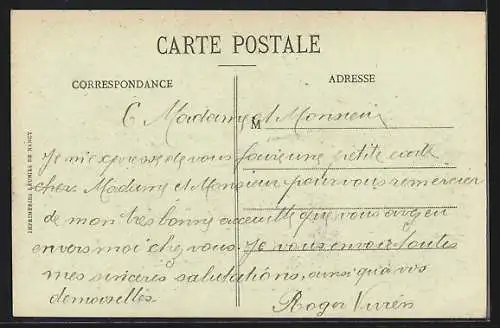 CARTE POSTALE
CORRESPONDANCE
ADRESSE
C Madame et Monsieur
M
Je m'expresse de vous faire une petite carte
cher Madame et Monsieur pour vous remercier
de mon très bonne acceuille que vous avez eu
envers moi chez vous. Je vous envoie toutes
mes sincères salutations, ainsi qu'à vos
demoiselles.
Roger Vivien
IMPRIMERIES RÉUNIES DE NANCY